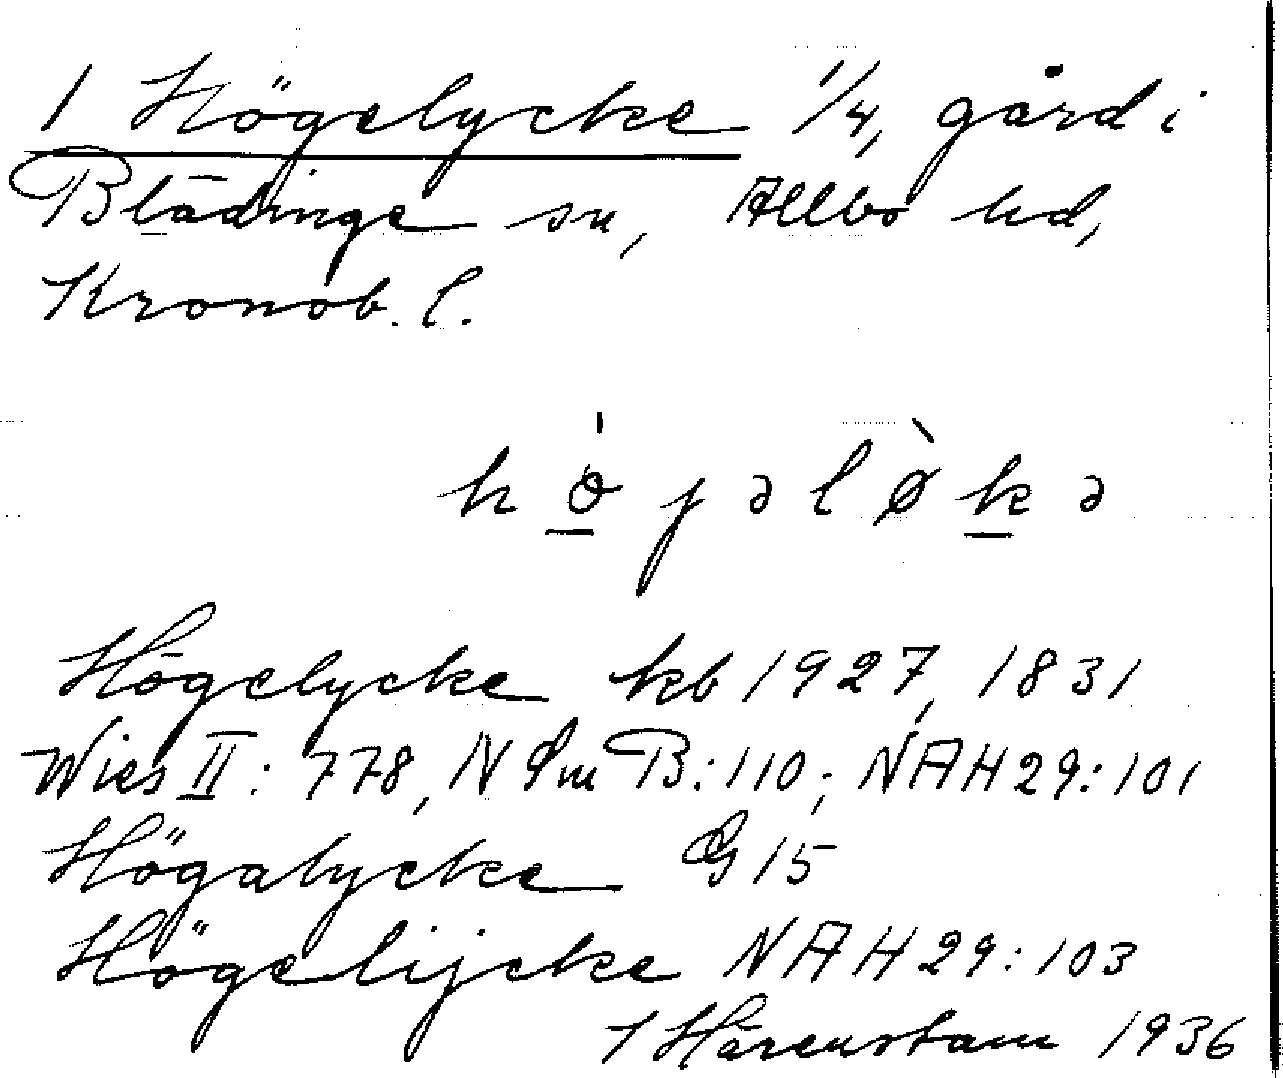 1 Högelycke 1/4, gård i
Blädinge sn, Allbo hd,
Kronob. l.
hö́jəlø̀kə
Högelycke kb 1927, 1831
Wies II: 778, N Sm B: 110; NAH 29: 101
Högalycke G 15
Högelijcke NAH 29: 103
Hårenstam 1936